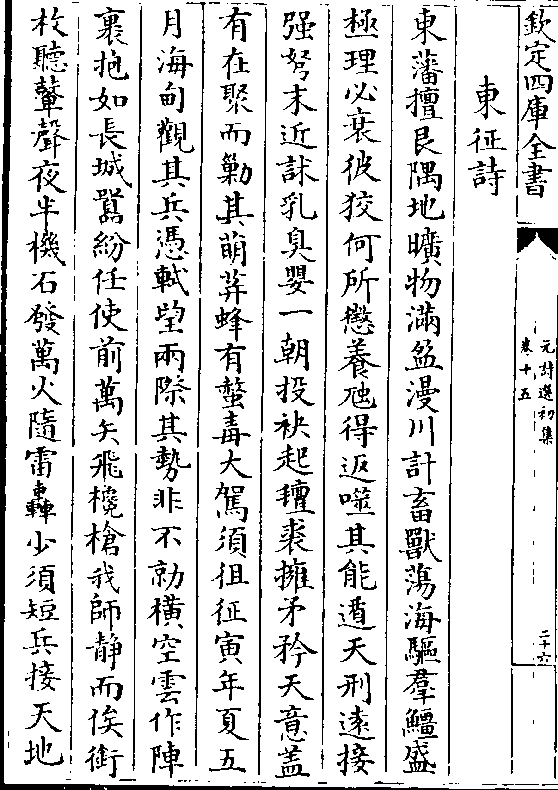 欽定四庫全書
元詩選初集
卷十五
二十六
東征詩
東藩擅艮隅地曠物滿盈漫川計畜獸蕩海驅羣鱷盛
極理必衰彼狡何所懲養虺得返噬其能遁天刑遠接
强弩末近詠乳臭嬰一朝投袂起氊裘擁矛矜天意蓋
有在聚而勦其萌莽蜂有螫毒大駕須徂征寅年夏五
月海甸觀其兵憑軾望兩際其勢非不勍横空雲作陣
裹抱如長城嚣紛任使前萬矢飛欃槍我師静而俟銜
枚聽鼙聲夜半機石發萬火隨雷轟少須短兵接天地